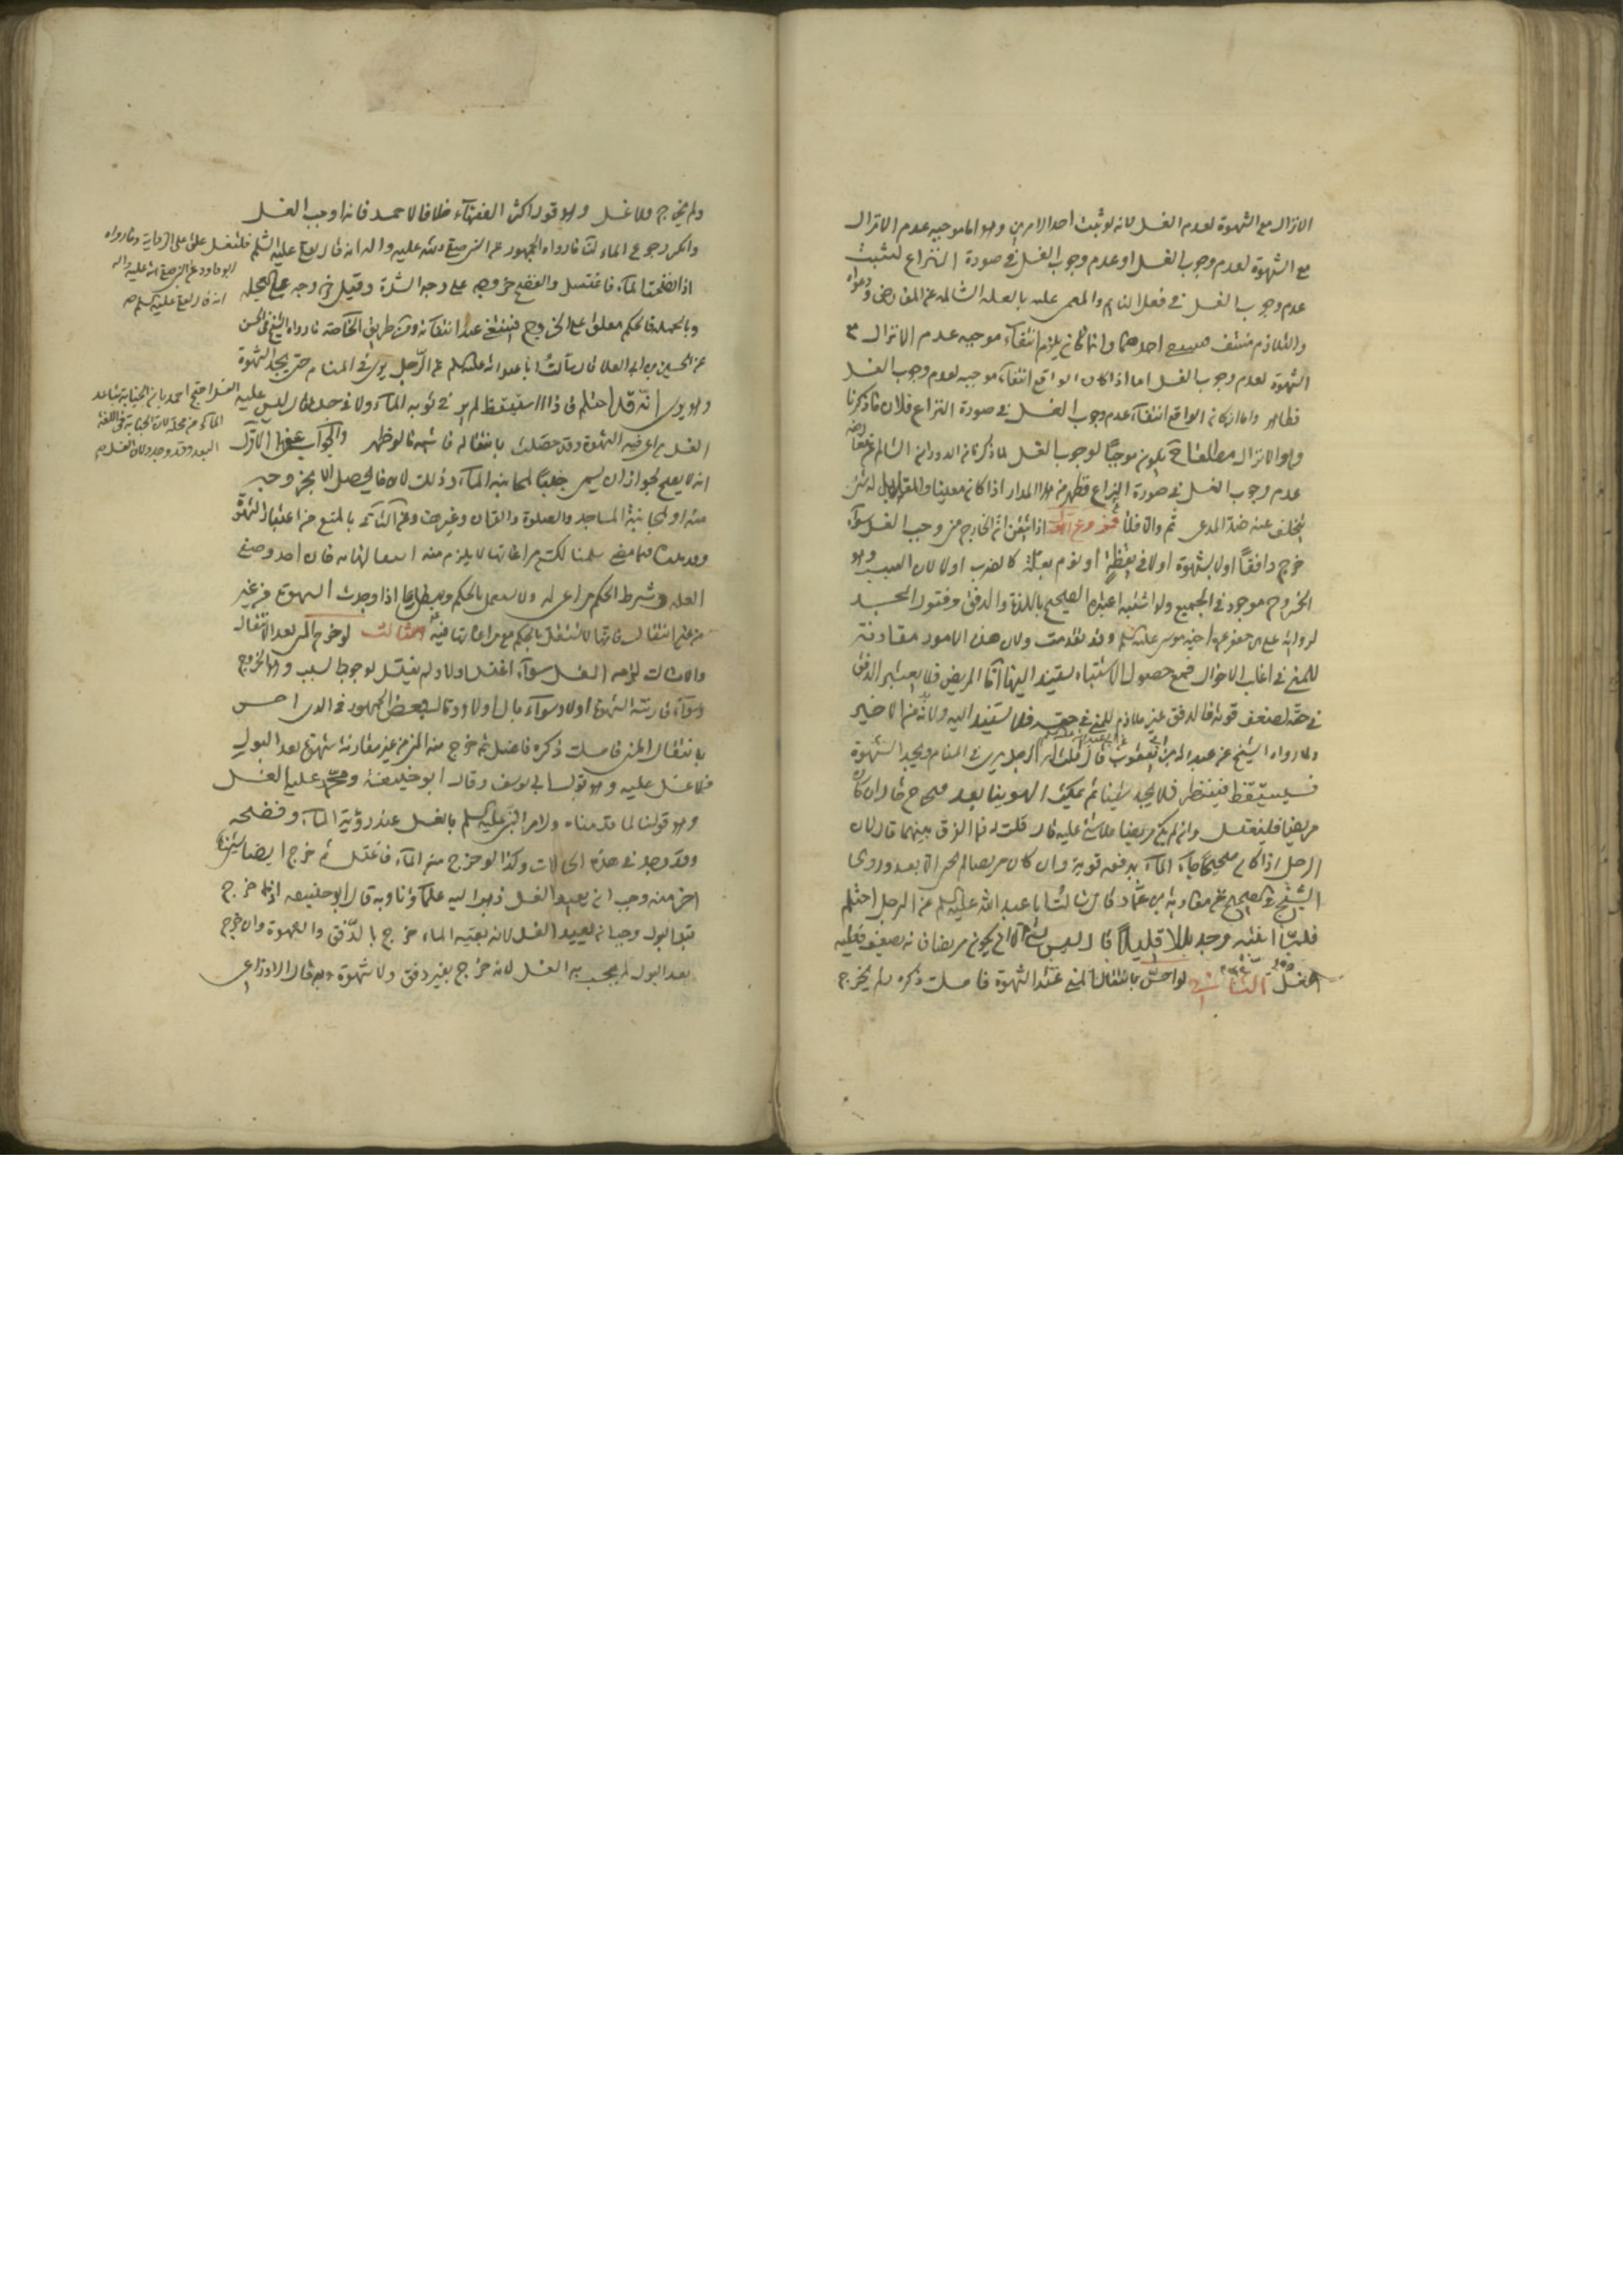 الانزال مع الشهوة لعدم الغسل لانه لو ثبت احد الامرين وهو اما موجبه عدم الانزال
مع الشهوة لعدم وجوب الغسل او عدم وجوب الغسل في صورة النزاع لثبت
عدم وجوب الغسل في فعل النايم والمغمى عليه بالعلة السالمة عن المعارض
والتلازم منتف احدهما وانما كان يلزم انتفاء موجبه عدم الانزال
الشهوة لعدم وجوب الغسل اما اذا كان الواقع انتفاء موجبه لعدم وجوب الغسل
فظاهر واما اذا كان الواقع انتفاء عدم وجوب الغسل في صورة النزاع فلان ما ذكرنا
وهو الانزال مطلقا ح يكون موجبا لوجوب الغسل لما ذكرنا من الدوران السالم
عدم وجوب الغسل في صورة النزاع فظهر من هذا المدار اذا كان معينا
تخلف عنه ضد المدعى ثم والا فلا فروع اذا تيقن ان الخارج مني وجب الغسل سواء
خرج دافقا اولا بشهوة اولا في يقظة او نوم بعلة كالضرب اولا لان السبب وهو
الخروج موجود في الجميع ولو اشتبه اعتبر الصحيح باللذة والدفق وفتور الجسد
لرواية علي بن جعفر عن اخيه موسى عليه السلم وقد تقدمت ولان هذه الامور مقارنة
للمني في اغلب الاحوال فمع حصول الاشتباه يستند اليها اما المريض فلا يعتبر الدفق
في حقه لضعف قوته فالدفق غير ملازم للمني في حقه فلا يستند اليه
ولما رواه الشيخ عن عبد الله بن ابي يعفور قال قلت له الرجل يرى في المنام ويجد الشهوة
فيستيقظ فينظر فلا يجد شيئا ثم يمكث الهوينا بعد فيخرج قال ان كان
مريضا فليغتسل وان لم يكن مريضا فلا شئ عليه قال قلت فما الفرق بينهما قال لان
الرجل اذا كان صحيحا جاء الماء بدفعه قوية وان كان مريضا لم يجئ الا بعد وروى
الشيخ في الصحيح عن معاوية بن عمار قال سالت ابا عبد الله عليه السلم عن الرجل احتلم
فلما انتبه وجد بللا قليلا قال ليس بشئ الا ان يكون مريضا فانه يضعف فعليه
الغسل الثاني لو احس بانتقال المني عند الشهوة فامسك ذكره فلم يخرج
ولم يخرج فلا غسل وهو قول اكثر الفقهاء خلافا لاحمد فانه اوجب الغسل
وانكر رجوع الماء لنا ما رواه الجمهور عن النبي صلى الله عليه واله انه قال لعلي عليه السلم
اذا فضخت الماء فاغتسل والفضخ خروجه على وجه الشدة وقيل خروجه على العجلة
وبالجملة فالحكم معلق على الخروج فينتفي عند انتفائه ومن طريق الخاصة ما رواه الشيخ في الحسن
عن الحسين بن ابي العلا قال سالت ابا عبد الله عليه السلم عن الرجل يرى في المنام حتى يجد الشهوة
وهو يرى انه قد احتلم فاذا استيقظ لم ير في ثوبه الماء ولا في جسده قال ليس عليه
الغسل يراعى فيه الشهوة وقد حصلت بانتقاله فاشبه ما لو ظهر والجواب عن الاول
انه لا يصح لجواز ان يسمى جنبا لمجانبة الماء وذلك لا يحصل الا بخروجه
منه او لمجانبة المساجد والصلوة والقران وغيرها وعن الثاني بالمنع من اعتبار الشهوة
وقد بينا فيما مضى سلمنا لكن مراعاتها لا يلزم منه استقلالها به فان احد وصفي
العلة وشرط الحكم مراعى له ولا يستقل بالحكم ويبطل ما اذا وجدت الشهوة من غير
من غير انتقال فانها لا تستقل بالحكم مع مراعاتها فيه الثالث لو خرج المني بعد الانتقال
والامساك لزمه الغسل سواء اغتسل اولا ولم يغتسل لوجود السبب وهو الخروج
وسواء قارنته الشهوة اولا وسواء بال اولا وقال بعض الجمهور في الذي احس
بانتقال المني فامسك ذكره فاغتسل ثم خرج منه المني من غير مقارنة شهوة بعد البول
فلا غسل عليه وهو قول ابي يوسف وقال ابو حنيفة ومحمد عليه الغسل
وهو قولنا لما قدمناه ولامر النبي عليه السلم بالغسل عند رؤية الماء وفضخه
وقد وجد في هذه الحالات وكذا لو خرج منه الماء فاغتسل ثم خرج ايضا شئ
اخر منه وجب ان يعيد الغسل ذهب اليه علماؤنا وبه قال ابو حنيفة اذا خرج
قبل البول وجب ان يعيد الغسل لانه بقية الماء خرج بالدفق والشهوة وان خرج
بعد البول لم يجب به الغسل لانه خرج بغير دفق ولا شهوة وبه قال الاوزاعي
فلتغسل على الرواية وما رواه
ابو داود عن النبي صلى الله عليه واله
انه قال لعلي عليه السلم
الغسل احتج احمد بان الجنابة تباعد
الماء عن محله لان الجنابة في اللغة
البعد وقد وجد ولان الغسل